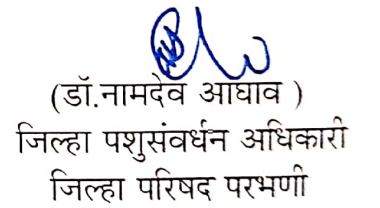 (डॉ.नामदेव आघाव )
जिल्हा पशुसंवर्धन अधिकारी
जिल्हा परिषद परभणी